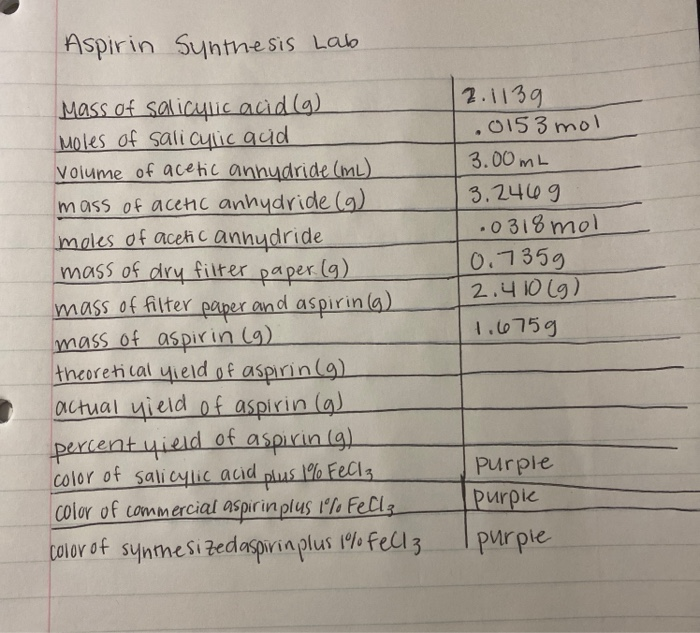 Aspirin Synthesis Lab
Mass of salicylic acid (g) 2.113g
Moles of salicylic acid .0153 mol
Volume of acetic anhydride (mL) 3.00 mL
mass of acetic anhydride (g) 3.246g
moles of acetic anhydride .0318 mol
mass of dry filter paper (g) 0.735g
mass of filter paper and aspirin (g) 2.410 (g)
mass of aspirin (g) 1.675g
theoretical yield of aspirin (g)
actual yield of aspirin (g)
percent yield of aspirin (g)
color of salicylic acid plus 1% FeCl3 purple
color of commercial aspirin plus 1% FeCl3 purple
color of synthesized aspirin plus 1% FeCl3 purple